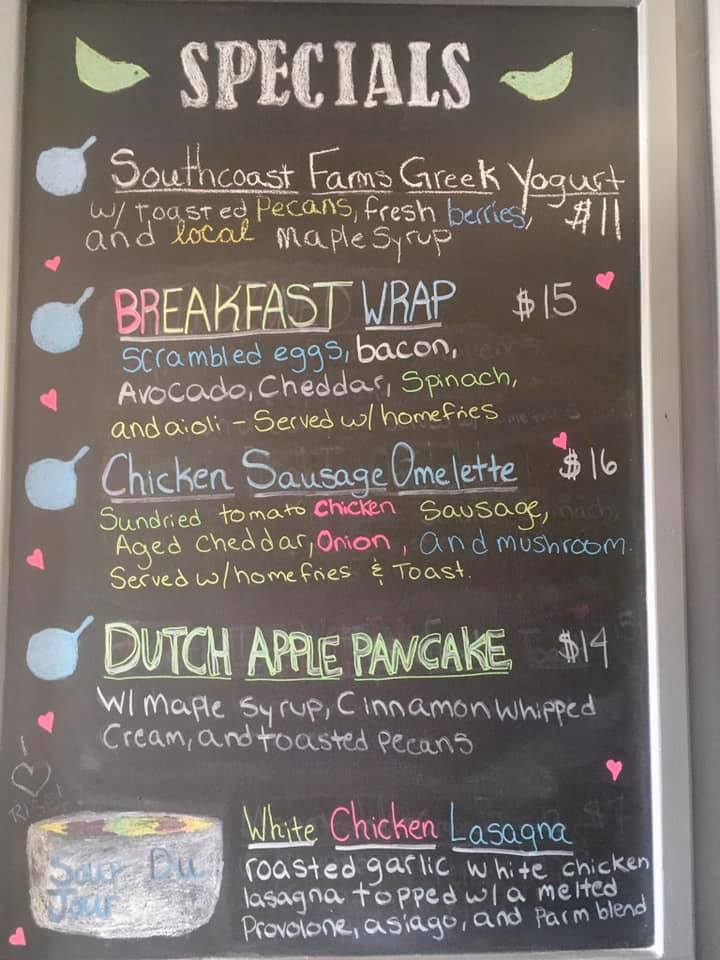 SPECIALS
Southcoast Farms Greek Yogurt
w/ toasted Pecans, fresh berries, $11
and local Maple Syrup
BREAKFAST WRAP $15
Scrambled eggs, bacon,
Avocado, Cheddar, Spinach,
and aioli - Served w/ homefries
Chicken Sausage Omelette $16
Sundried tomato Chicken Sausage,
Aged Cheddar, Onion, and mushroom.
Served w/ homefries & Toast.
DUTCH APPLE PANCAKE $14
W/ Maple Syrup, Cinnamon Whipped
Cream, and toasted Pecans
I
Soup Du
Jour
White Chicken Lasagna
roasted garlic white chicken
lasagna topped w/ a melted
Provolone, asiago, and Parm blend